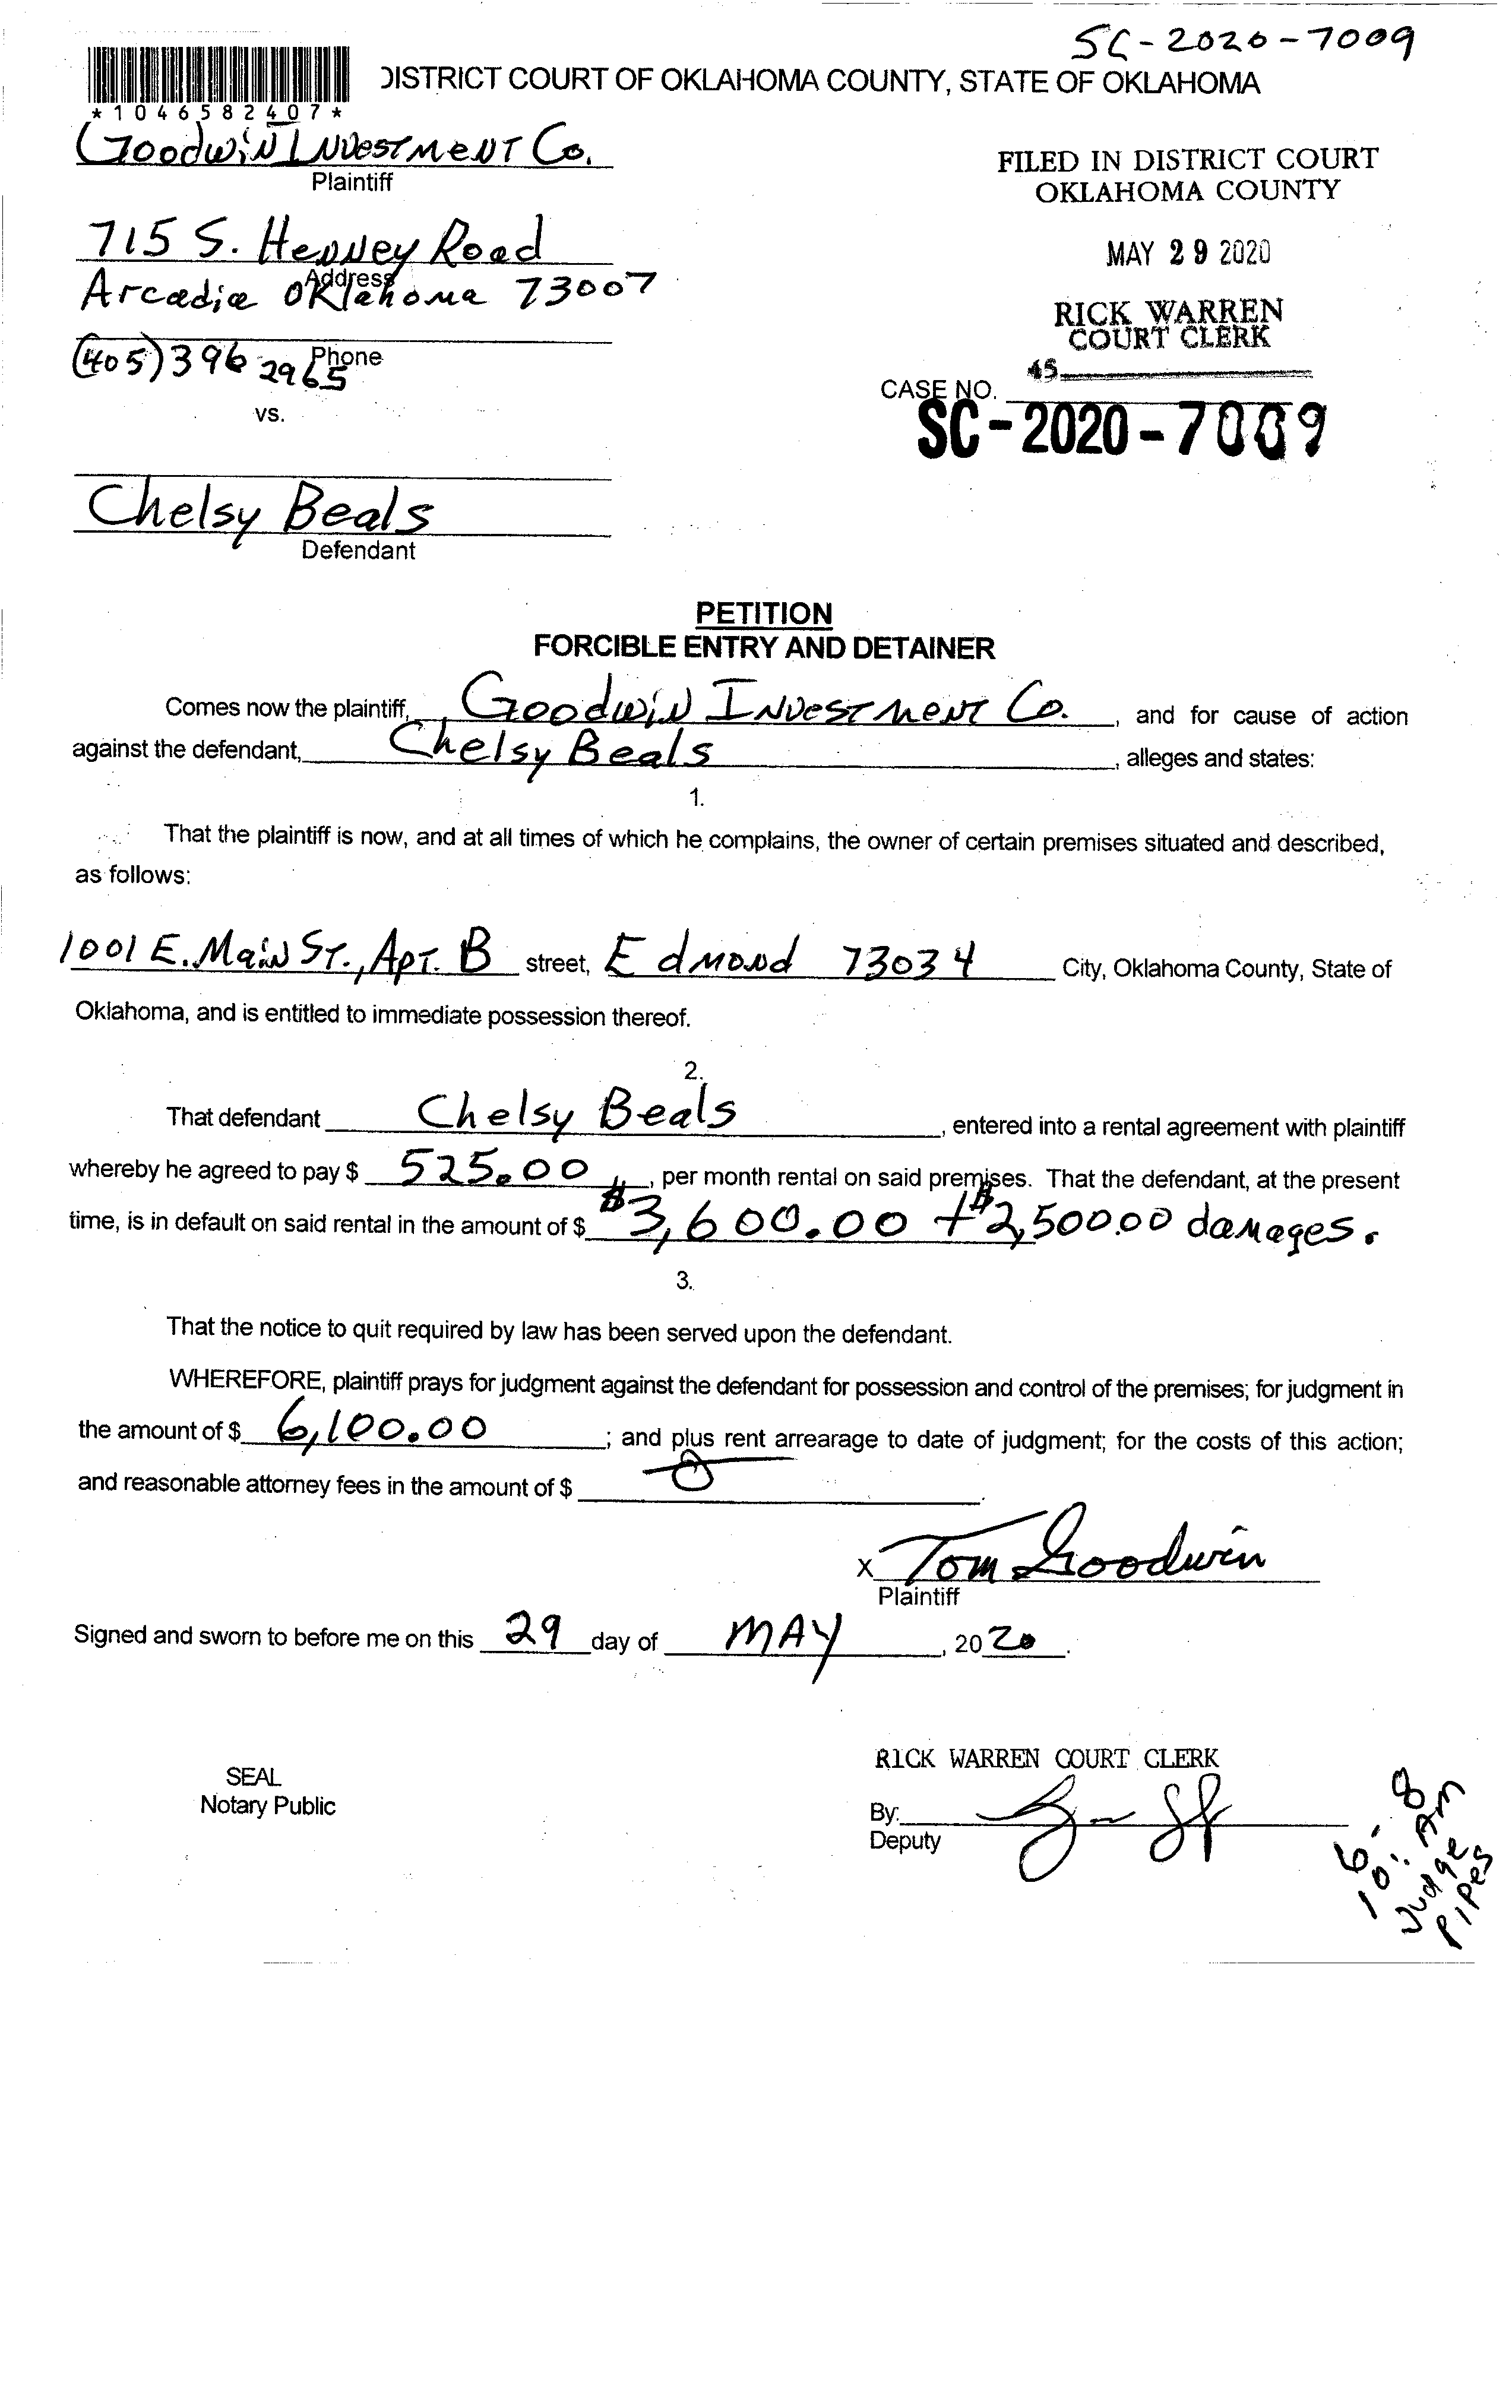 SC-2020-7009
DISTRICT COURT OF OKLAHOMA COUNTY, STATE OF OKLAHOMA
*1046582407*
Goodwin Investment Co.
Plaintiff
FILED IN DISTRICT COURT
OKLAHOMA COUNTY
715 S. Henney Road
Address
Arcadia Oklahoma 73007
MAY 29 2020
RICK WARREN
COURT CLERK
(405) 396 2965
Phone
45
CASE NO.
SC-2020-7009
vs.
Chelsy Beals
Defendant
PETITION
FORCIBLE ENTRY AND DETAINER
Comes now the plaintiff, Goodwin Investment Co. , and for cause of action
against the defendant, Chelsy Beals , alleges and states:
1.
That the plaintiff is now, and at all times of which he complains, the owner of certain premises situated and described,
as follows:
1001 E. Main St., Apt. B street, Edmond 73034 City, Oklahoma County, State of
Oklahoma, and is entitled to immediate possession thereof.
2.
That defendant Chelsy Beals , entered into a rental agreement with plaintiff
whereby he agreed to pay $ 525.00 , per month rental on said premises. That the defendant, at the present
time, is in default on said rental in the amount of $ $3,600.00 + $2,500.00 damages.
3.
That the notice to quit required by law has been served upon the defendant.
WHEREFORE, plaintiff prays for judgment against the defendant for possession and control of the premises; for judgment in
the amount of $ 6,100.00 ; and plus rent arrearage to date of judgment; for the costs of this action;
and reasonable attorney fees in the amount of $ 0 .
X Tom Goodwin
Plaintiff
Signed and sworn to before me on this 29 day of MAY , 2020.
RICK WARREN COURT CLERK
SEAL
Notary Public
By:
Deputy
6-8
10: AM
Judge
Pipes